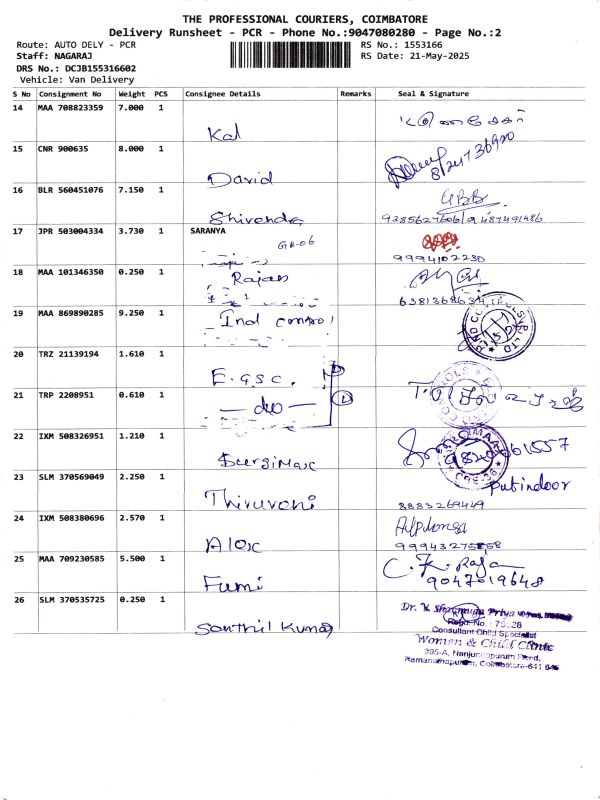 THE PROFESSIONAL COURIERS, COIMBATORE
Delivery Runsheet - PCR - Phone No.:9047080280 - Page No.:2
Route: AUTO DELY - PCR
Staff: NAGARAJ
DRS No.: DCJB155316602
Vehicle: Van Delivery
RS No.: 1553166
RS Date: 21-May-2025
S No Consignment No Weight PCS Consignee Details Remarks Seal & Signature
14 MAA 708823359 7.000 1 Kal
15 CNR 900635 8.000 1 David
16 BLR 560451076 7.150 1 Shivendra
9385627606
17 JPR 503004334 3.730 1 SARANYA
GB-06
9994102230
18 MAA 101346350 0.250 1 Rajan
19 MAA 869890285 9.250 1 Ind control
20 TRZ 21139194 1.610 1 E.GSC.
21 TRP 2208951 0.610 1 — do —
22 IXM 508326951 1.210 1
23 SLM 370569049 2.250 1 Thiruveni
8883269449
24 IXM 508380696 2.570 1 Alex
25 MAA 709230585 5.500 1 Fumi C. K. Raja
9047019648
26 SLM 370535725 0.250 1 Senthil Kumar
Consultant Child Specialist
Women & Child Clinic